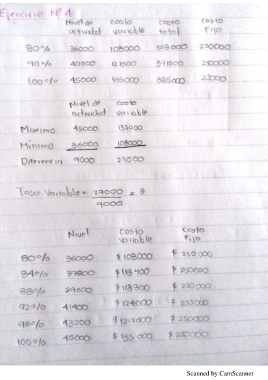 Ejercicio Nº 4
Nivel de costo costo costo
actividad variable total Fijo
80% 36000 108000 358000 250000
90% 40500 121500 371500 250000
100% 45000 135000 385000
Nivel de costo
actividad variable
Maximo 45000 135000
Minimo 36000 108000
Diferencia 9000 27000
Tasa Variable = 27000 = 3
9000
Nivel costo Costo
variable Fijo
80% 36000 $ 108000 $ 250 000
84% 37800 $ 113 400 $ 250000
88% $ 250000
92% 41400 $ 250000
96% 43200 $ 250000
100% 45000 $ 135 000 $ 250000
Scanned by CamScanner